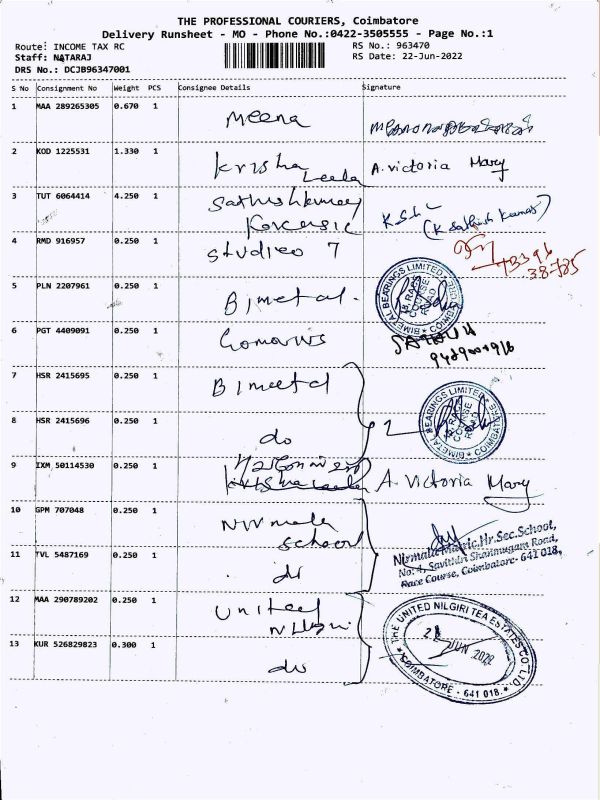 THE PROFESSIONAL COURIERS, Coimbatore
Delivery Runsheet - MO - Phone No.:0422-3505555 - Page No.:1
Route: INCOME TAX RC RS No.: 963470
Staff: NATARAJ RS Date: 22-Jun-2022
DRS No.: DCJB96347001
S No Consignment No Weight PCS Consignee Details Signature
1 MAA 289265305 0.670 1 Meena
2 KOD 1225531 1.330 1 Krisha Leela A. Victoria Mary
3 TUT 6064414 4.250 1 Sathishkumar K.S.h (K Sathish Kumar)
4 RMD 916957 0.250 1 Studieo 7 73396
38785
5 PLN 2207961 0.250 1 Bimetal. BIMETAL BEARINGS LIMITED 18, RACE COURSE ROAD COIMBATORE
6 PGT 4409091 0.250 1
7 HSR 2415695 0.250 1 Bimetal
8 HSR 2415696 0.250 1 do 2 BIMETAL BEARINGS LIMITED 18, RACE COURSE ROAD COIMBATORE
9 IXM 50114530 0.250 1 A. Victoria Mary
10 GPM 707048 0.250 1 Nirmala School
Nirmala Matric.Hr.Sec.School,
No: 4, Savithiri Shanmugam Road,
Race Course, Coimbatore- 641 018.
11 TVL 5487169 0.250 1 do
12 MAA 290789202 0.250 1 United Nilgiri THE UNITED NILGIRI TEA ESTATES CO. LTD. COIMBATORE - 641 018.
JUN 2022
13 KUR 526829823 0.300 1 do